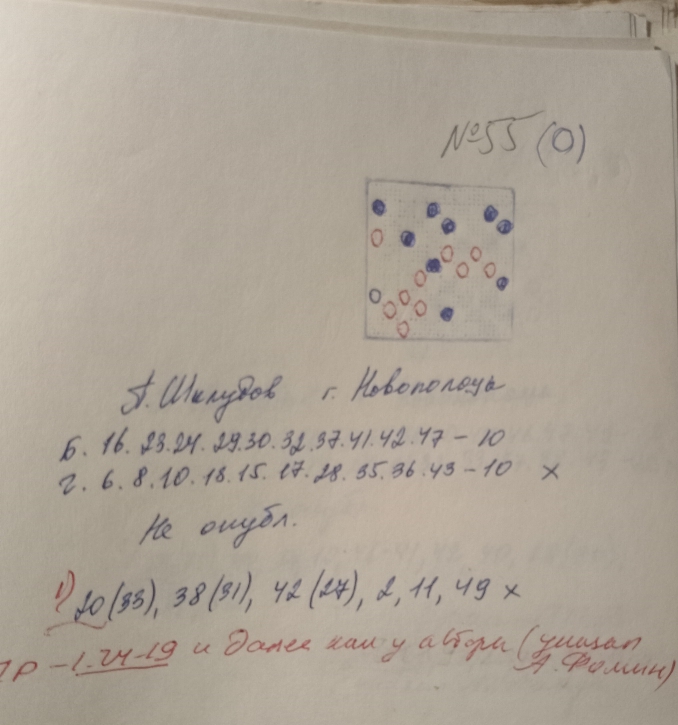 №55 (0)
А. Шклудов г. Новополоцк
Б. 16. 23.24. 29.30. 32.37.41.42.47 – 10
Ч. 6. 8. 10. 18. 15. 17. 28. 35. 36. 43 – 10 х
Не опубл.
1) 20(33), 38(31), 42(27), 2, 11, 49 х
ПР – 1.24-19 и далее как у автора (
А. Фомин)